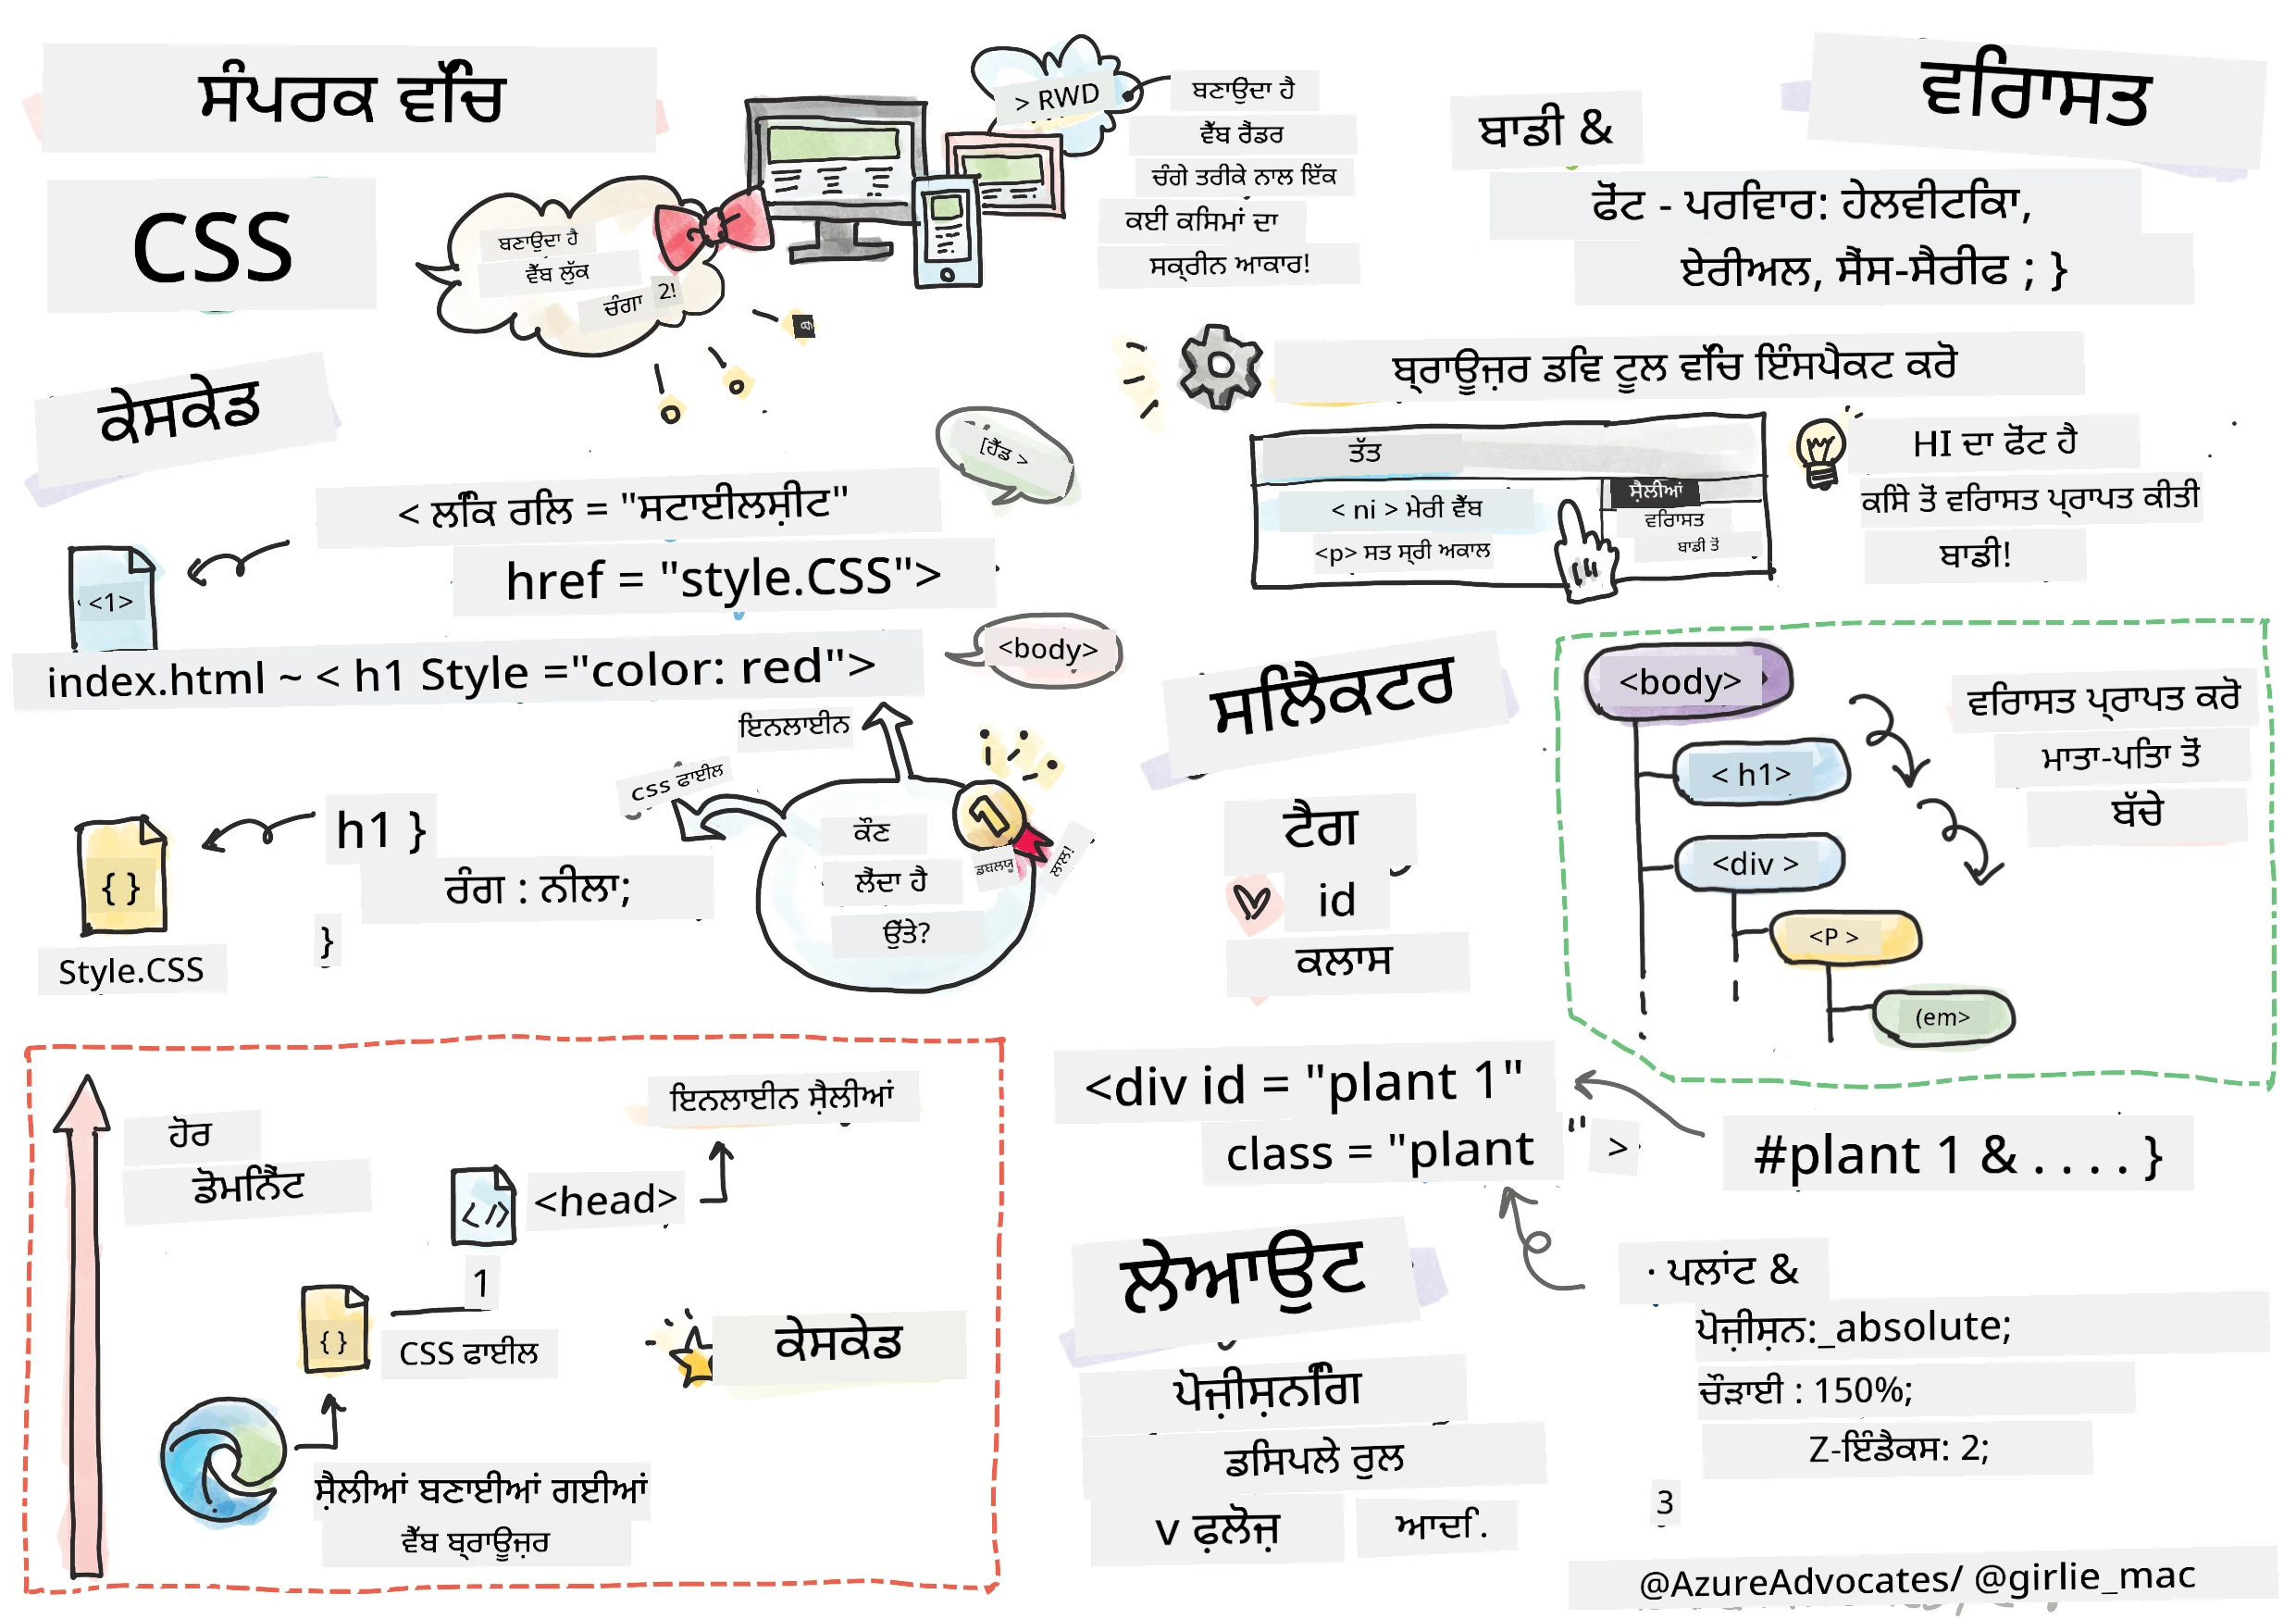 ਸੰਪਰਕ ਵਿੱਚ
CSS
ਬਣਾਉਂਦਾ ਹੈ
ਵੈੱਬ ਲੁੱਕ
ਚੰਗਾ 2!
> RWD
ਬਣਾਉਂਦਾ ਹੈ
ਵੈੱਬ ਰੈਂਡਰ
ਚੰਗੇ ਤਰੀਕੇ ਨਾਲ ਇੱਕ
ਕਈ ਕਿਸਮਾਂ ਦਾ
ਸਕ੍ਰੀਨ ਆਕਾਰ!
ਵਿਰਾਸਤ
ਬਾਡੀ &
ਫੋਂਟ - ਪਰਿਵਾਰ: ਹੇਲਵੀਟਿਕਾ,
ਏਰੀਅਲ, ਸੈਂਸ-ਸੈਰੀਫ ; }
ਬ੍ਰਾਊਜ਼ਰ ਡਿਵ ਟੂਲ ਵਿੱਚ ਇੰਸਪੈਕਟ ਕਰੋ
ਤੱਤ
< ni > ਮੇਰੀ ਵੈੱਬ
<p> ਸਤ ਸ੍ਰੀ ਅਕਾਲ
ਸ਼ੈਲੀਆਂ
ਵਿਰਾਸਤ
ਬਾਡੀ ਤੋਂ
HI ਦਾ ਫੋਂਟ ਹੈ
ਕਿਸੇ ਤੋਂ ਵਿਰਾਸਤ ਪ੍ਰਾਪਤ ਕੀਤੀ
ਬਾਡੀ!
ਕੇਸਕੇਡ
[ਹੈੱਡ >
< ਲਿੰਕ ਰਲਿ = "ਸਟਾਈਲਸ਼ੀਟ"
href = "style.CSS">
<1>
index.html ~ < h1 Style ="color: red">
<body>
ਇਨਲਾਈਨ
css ਫਾਈਲ
h1 }
ਰੰਗ : ਨੀਲਾ;
}
{ }
Style.CSS
ਕੌਣ
ਲੈਂਦਾ ਹੈ
ਉੱਤੇ?
1
ਡਬਲਯੂ
ਲਾਲ!
ਸਿਲੈਕਟਰ
ਟੈਗ
id
ਕਲਾਸ
<body>
< h1>
<div >
<P >
(em>
ਵਿਰਾਸਤ ਪ੍ਰਾਪਤ ਕਰੋ
ਮਾਤਾ-ਪਿਤਾ ਤੋਂ
ਬੱਚੇ
<div id = "plant 1"
class = "plant " >
#plant 1 & . . . . }
· ਪਲਾਂਟ &
ਪੋਜ਼ੀਸ਼ਨ:_absolute;
ਚੌੜਾਈ : 150%;
Z-ਇੰਡੈਕਸ: 2;
3
ਹੋਰ
ਡੋਮਿਨੈਂਟ
ਇਨਲਾਈਨ ਸ਼ੈਲੀਆਂ
</>
<head>
1
{ }
CSS ਫਾਈਲ
ਕੇਸਕੇਡ
ਸ਼ੈਲੀਆਂ ਬਣਾਈਆਂ ਗਈਆਂ
ਵੈੱਬ ਬ੍ਰਾਊਜ਼ਰ
ਲੇਆਉਟ
ਪੋਜ਼ੀਸ਼ਨਿੰਗ
ਡਿਸਪਲੇ ਰੂਲ
v ਫ਼ਲੋਜ਼ ਆਦਿ.
@AzureAdvocates/ @girlie_mac